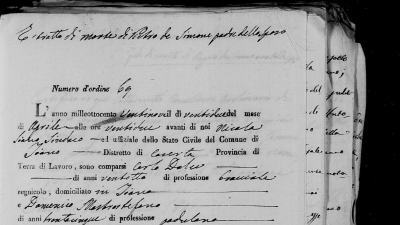 Estratto di morte di Pietro de Simone padre dello sposo
Numero d'ordine 69
L'anno milleottocento ventinove il dì ventidue del mese
di Aprile alle ore ventidue avanti di noi Nicola
Sindaco ed uffiziale dello Stato Civile del Comune di
Teano Distretto di Caserta Provincia di
Terra di Lavoro, sono comparsi Carlo
di anni ventotto di professione bracciale
regnicolo, domiciliato in Teano
e Domenico Mastrostefano
di anni trentacinque di professione